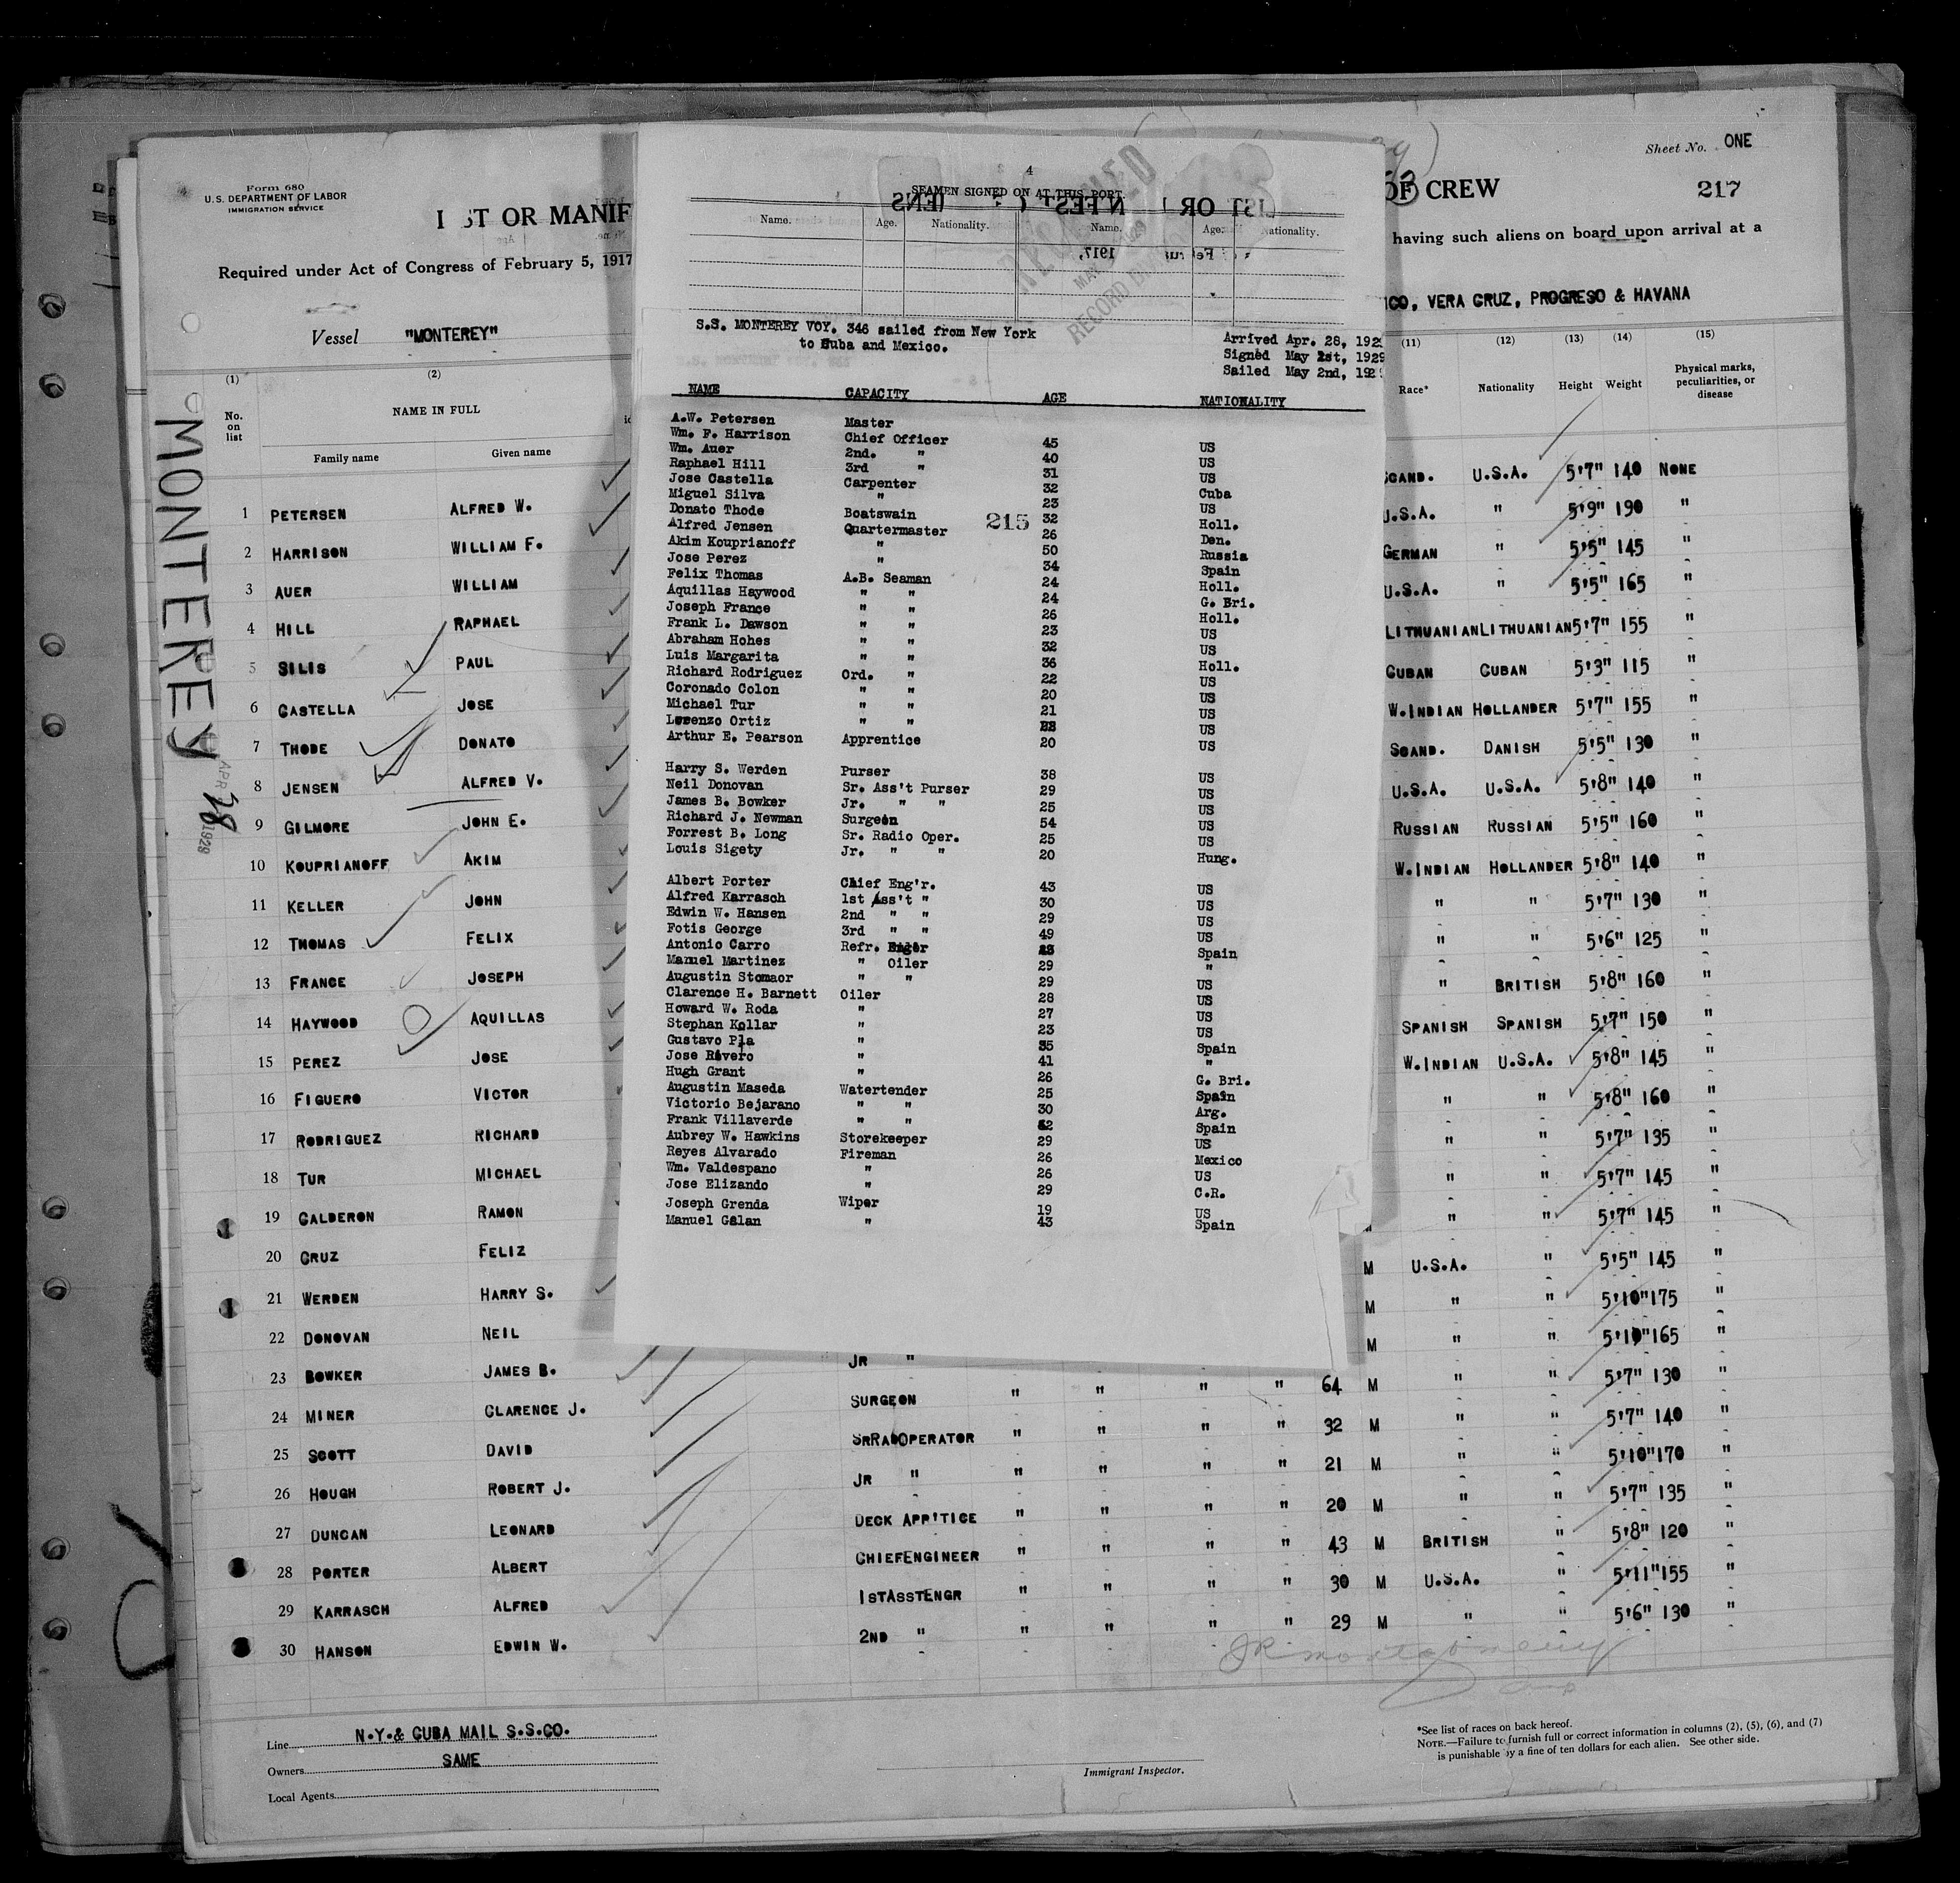 Form 680
U.S. DEPARTMENT OF LABOR
IMMIGRATION SERVICE
ST OR MANIF
Required under Act of Congress of February 5, 1917
Vessel "MONTEREY"
(1) (2)
No. on list
NAME IN FULL
Family name Given name
1 PETERSEN ALFRED W.
2 HARRISON WILLIAM F.
3 AUER WILLIAM
4 HILL RAPHAEL
5 SILIS PAUL
6 CASTELLA JOSE
7 THODE DONATO
8 JENSEN ALFRED V.
9 GILMORE JOHN E.
10 KOUPRIANOFF AKIM
11 KELLER JOHN
12 THOMAS FELIX
13 FRANCE JOSEPH
14 HAYWOOD AQUILLAS
15 PEREZ JOSE
16 FIGUERO VICTOR
17 RODRIGUEZ RICHARD
18 TUR MICHAEL
19 CALDERON RAMON
20 CRUZ FELIZ
21 WERDEN HARRY S.
22 DONOVAN NEIL
23 BOWKER JAMES B.
24 MINER CLARENCE J.
25 SCOTT DAVID
26 HOUGH ROBERT J.
27 DUNCAN LEONARD
28 PORTER ALBERT
29 KARRASCH ALFRED
30 HANSON EDWIN W.
MONTEREY
APR 28 1929
Line N.Y.& CUBA MAIL S.S.CO.
Owners SAME
Local Agents
4
SEAMEN SIGNED ON AT THIS PORT
Name. Age. Nationality. Name. Age. Nationality.
RECORD
S.S. MONTEREY VOY. 346 sailed from New York
to Cuba and Mexico.
Arrived Apr. 28, 192
Signed May 1st, 1929
Sailed May 2nd, 192
NAME CAPACITY AGE NATIONALITY
A.W. Petersen Master
Wm. F. Harrison Chief Officer 45 US
Wm. Auer 2nd. " 40 US
Raphael Hill 3rd " 31 US
Jose Castella Carpenter 32 Cuba
Miguel Silva " 23 US
Donato Thode Boatswain 32 Holl.
Alfred Jensen Quartermaster 26 Den.
Akim Kouprianoff " 50 Russia
Jose Perez " 34 Spain
Felix Thomas A.B. Seaman 24 Holl.
Aquillas Haywood " " 24 G. Bri.
Joseph France " " 26 Holl.
Frank L. Dawson " " 23 US
Abraham Hohes " " 32 US
Luis Margarita " " 36 Holl.
Richard Rodriguez Ord. " 22 US
Coronado Colon " " 20 US
Michael Tur " " 21 US
Lorenzo Ortiz " " US
Arthur E. Pearson Apprentice 20 US
215
Harry S. Werden Purser 38 US
Neil Donovan Sr. Ass't Purser 29 US
James B. Bowker Jr. " " 25 US
Richard J. Newman Surgeon 54 US
Forrest B. Long Sr. Radio Oper. 25 US
Louis Sigety Jr. " " 20 Hung.
Albert Porter Chief Eng'r. 43 US
Alfred Karrasch 1st Ass't " 30 US
Edwin W. Hansen 2nd " " 29 US
Fotis George 3rd " " 49 US
Antonio Carro Refr. Spain
Manuel Martinez " Oiler 29 "
Augustin Stomaor " " 29 US
Clarence H. Barnett Oiler 28 US
Howard W. Roda " 27 US
Stephan Kollar " 23 US
Gustavo Pla " 35 Spain
Jose Rivero " 41 "
Hugh Grant " 26 G. Bri.
Augustin Maseda Watertender 25 Spain
Victorio Bejarano " " 30 Arg.
Frank Villaverde " " Spain
Aubrey W. Hawkins Storekeeper 29 US
Reyes Alvarado Fireman 26 Mexico
Wm. Valdespano " 26 US
Jose Elizando " 29 C.R.
Joseph Grenda Wiper 19 US
Manuel Galan " 43 Spain
Sheet No. ONE
OF CREW 217
having such aliens on board upon arrival at a
ICO, VERA CRUZ, PROGRESO & HAVANA
(11) (12) (13) (14) (15)
Race* Nationality Height Weight Physical marks, peculiarities, or disease
SCAND. U.S.A. 5'7" 140 NONE
U.S.A. " 5'9" 190 "
GERMAN " 5'5" 145 "
U.S.A. " 5'5" 165 "
LITHUANIAN LITHUANIAN 5'7" 155 "
CUBAN CUBAN 5'3" 115 "
W.INDIAN HOLLANDER 5'7" 155 "
SCAND. DANISH 5'5" 130 "
U.S.A. U.S.A. 5'8" 140 "
RUSSIAN RUSSIAN 5'5" 160 "
W.INDIAN HOLLANDER 5'8" 140 "
" " 5'7" 130 "
" " 5'6" 125 "
" BRITISH 5'8" 160 "
SPANISH SPANISH 5'7" 150 "
W.INDIAN U.S.A. 5'8" 145 "
" " 5'8" 160 "
" " 5'7" 135 "
" " 5'7" 145 "
" " 5'7" 145 "
M U.S.A. " 5'5" 145 "
M " " 5'10" 175 "
M " " 5'10" 165 "
JR "
SURGEON " " " " 64 M " " 5'7" 130 "
SRRADOPERATOR " " " " 32 M " " 5'7" 140 "
JR " " " " " 21 M " " 5'10" 170 "
DECK APP'TICE " " " " 20 M " " 5'7" 135 "
CHIEFENGINEER " " " " 43 M BRITISH " 5'8" 120 "
1STASSTENGR " " " " 30 M U.S.A. " 5'11" 155 "
2ND " " " " " 29 M " " 5'6" 130 "
JR Montgomery
Immigrant Inspector.
*See list of races on back hereof.
NOTE.—Failure to furnish full or correct information in columns (2), (5), (6), and (7)
is punishable by a fine of ten dollars for each alien. See other side.